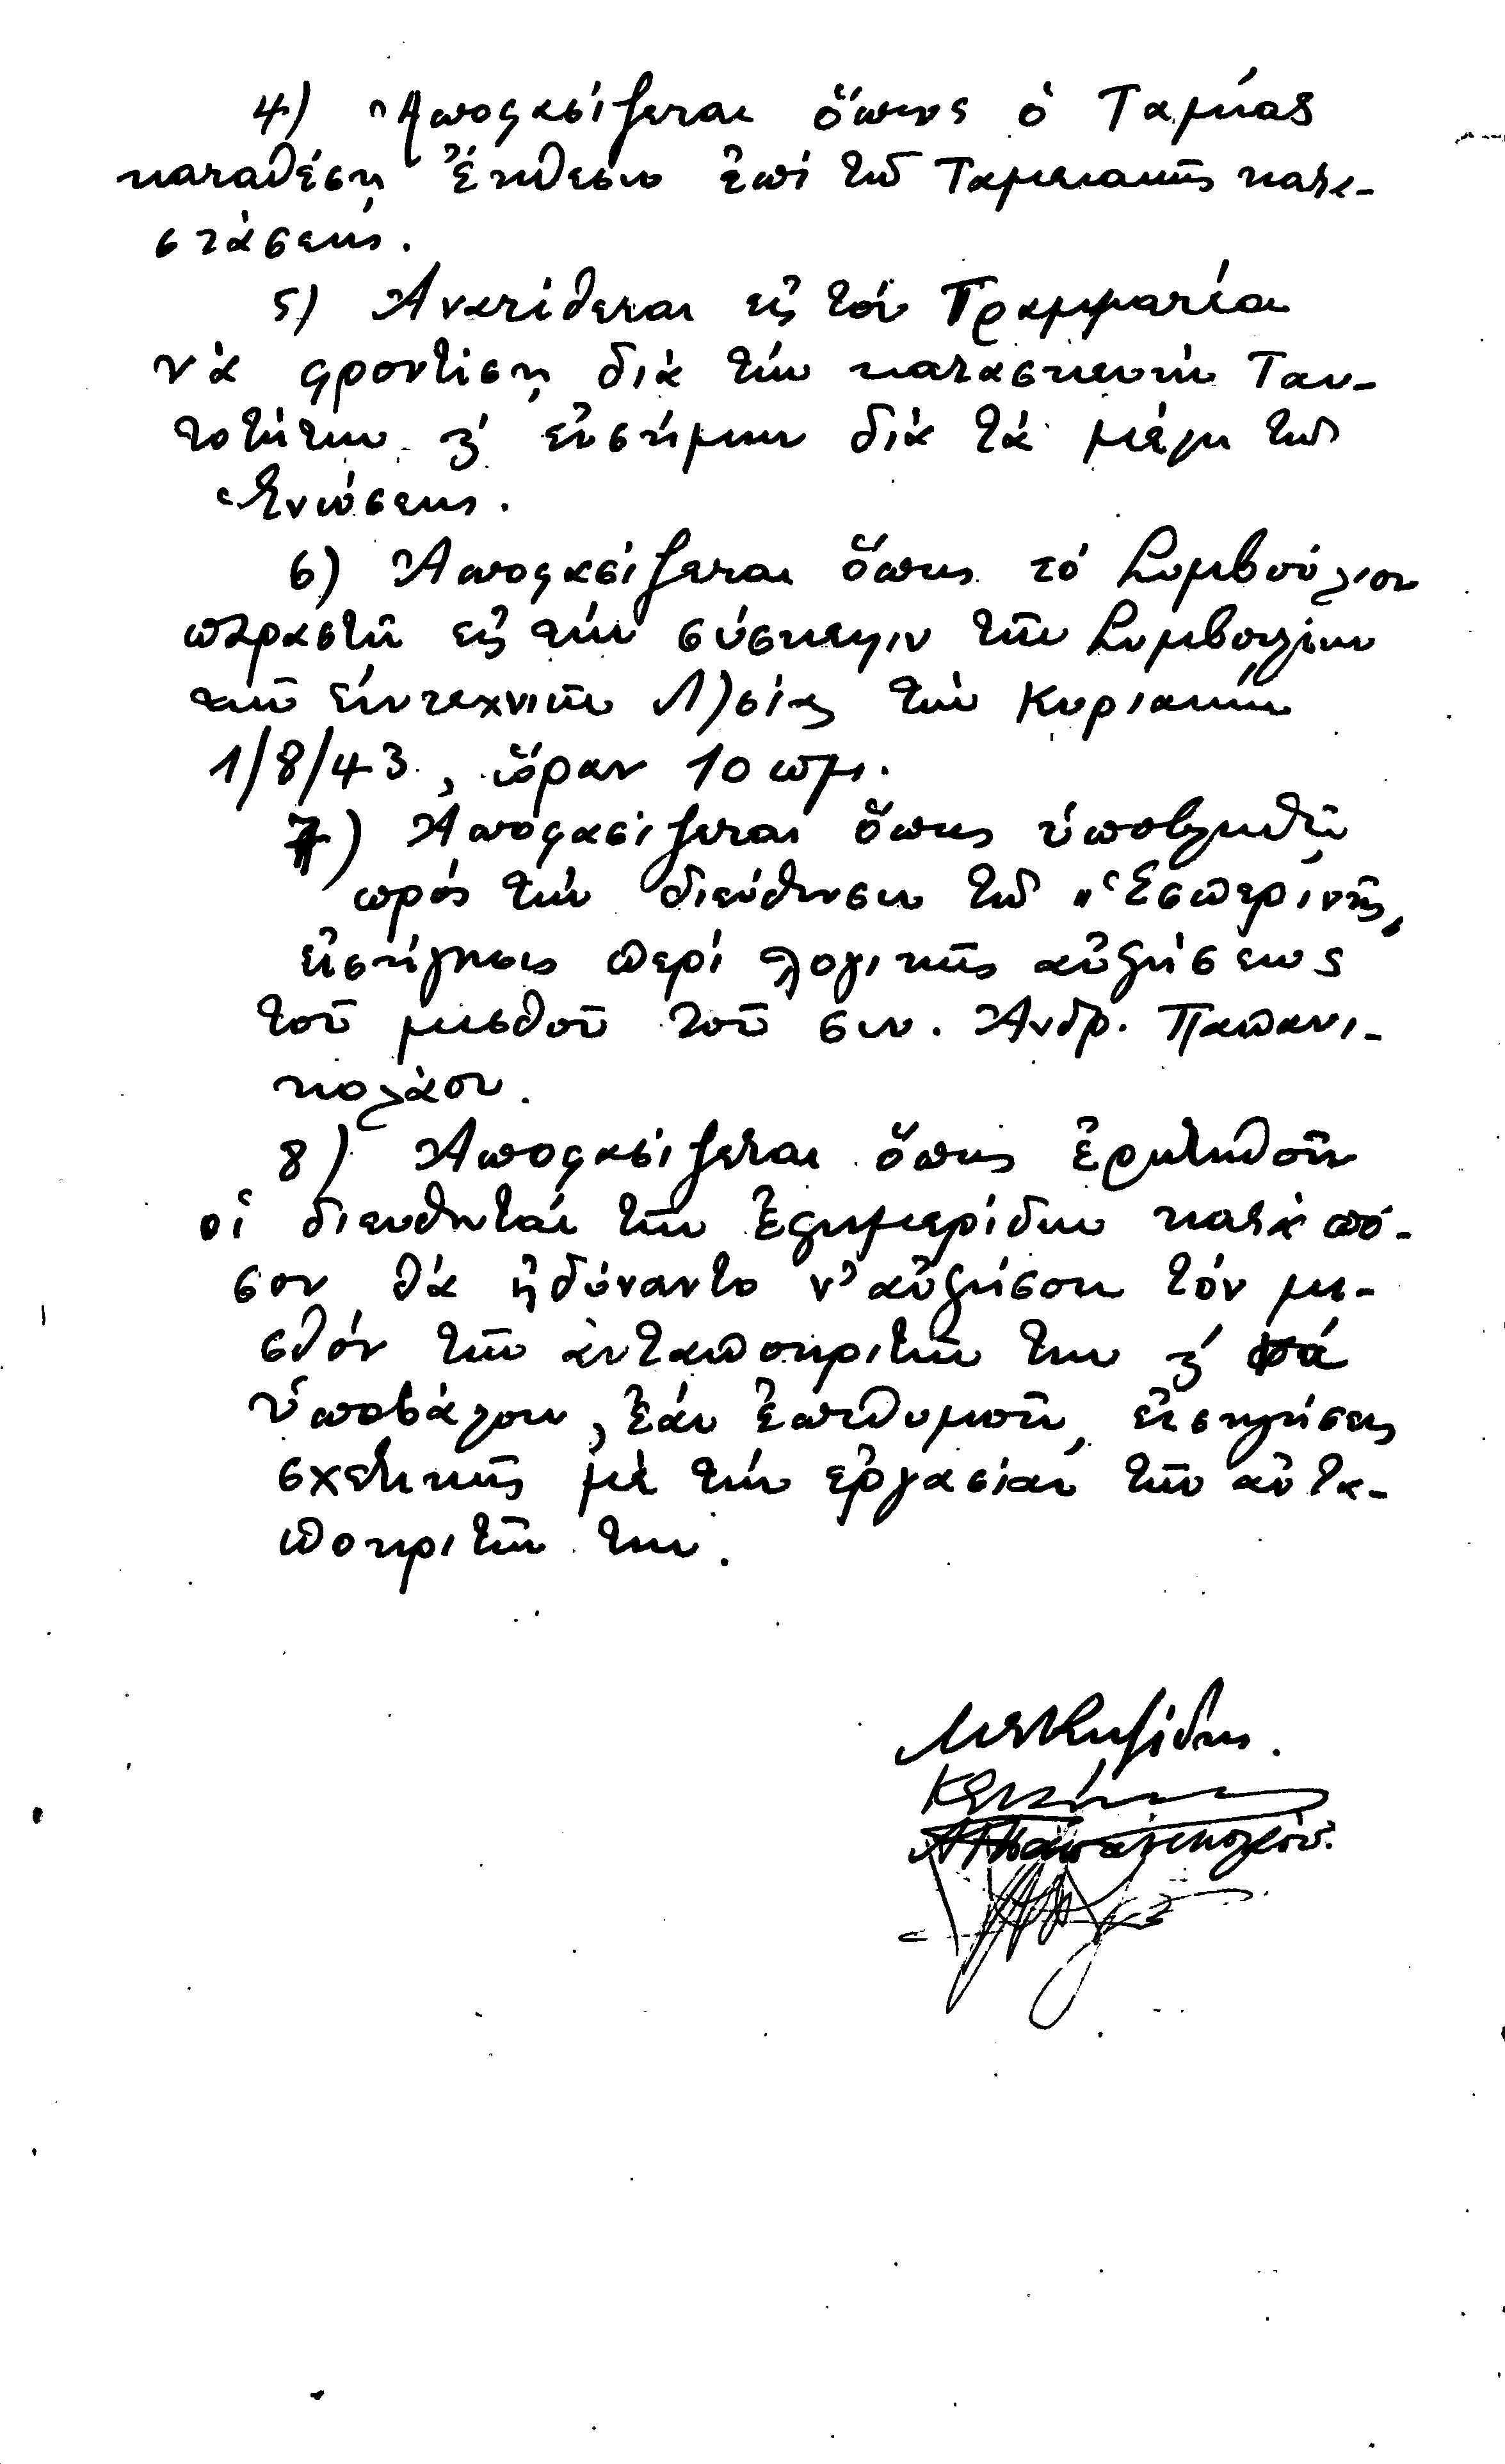 4) Ἀποφασίζεται ὅπως ὁ Ταμίας
καταθέσῃ Ἔκθεσιν ἐπί τῆς Ταμειακῆς κατα-
στάσεως.
5) Ἀνατίθεται εἰς τόν Γραμματέα
νὰ φροντίσῃ διὰ τήν κατασκευήν Ταυ-
τοτήτων ϗ εὐσήμων διὰ τὰ μέλη τῆς
Ἑνώσεως.
6) Ἀποφασίζεται ὅπως τό Συμβούλιον
παραστῇ εἰς τήν σύσκεψιν τῶν Συμβουλίων
τῶν συντεχνιῶν Λ)σίας τήν Κυριακήν
1/8/43, ὥραν 10 πμ.
7) Ἀποφασίζεται ὅπως ὑποβληθῇ
πρός τήν διεύθυνσιν τῆς "Ἑσπερινῆς"
εἰσήγησις περί λογικῆς αὐξήσεως
τοῦ μισθοῦ τοῦ συν. Ἀνδρ. Παπανι-
κολάου.
8) Ἀποφασίζεται ὅπως ἐρωτηθοῦν
οἱ διευθυνταί τῶν Ἐφημερίδων κατὰ πό-
σον θὰ ἠδύναντο ν' αὐξήσουν τόν μι-
σθόν τῶν ἀνταποκριτῶν των ϗ νά
ὑποβάλουν, ἐάν ἐπιθυμοῦν, εἰσηγήσεις
σχετικῆς μὲ τήν ἐργασίαν τῶν ἀντα-
ποκριτῶν των.
Παπανικολάου